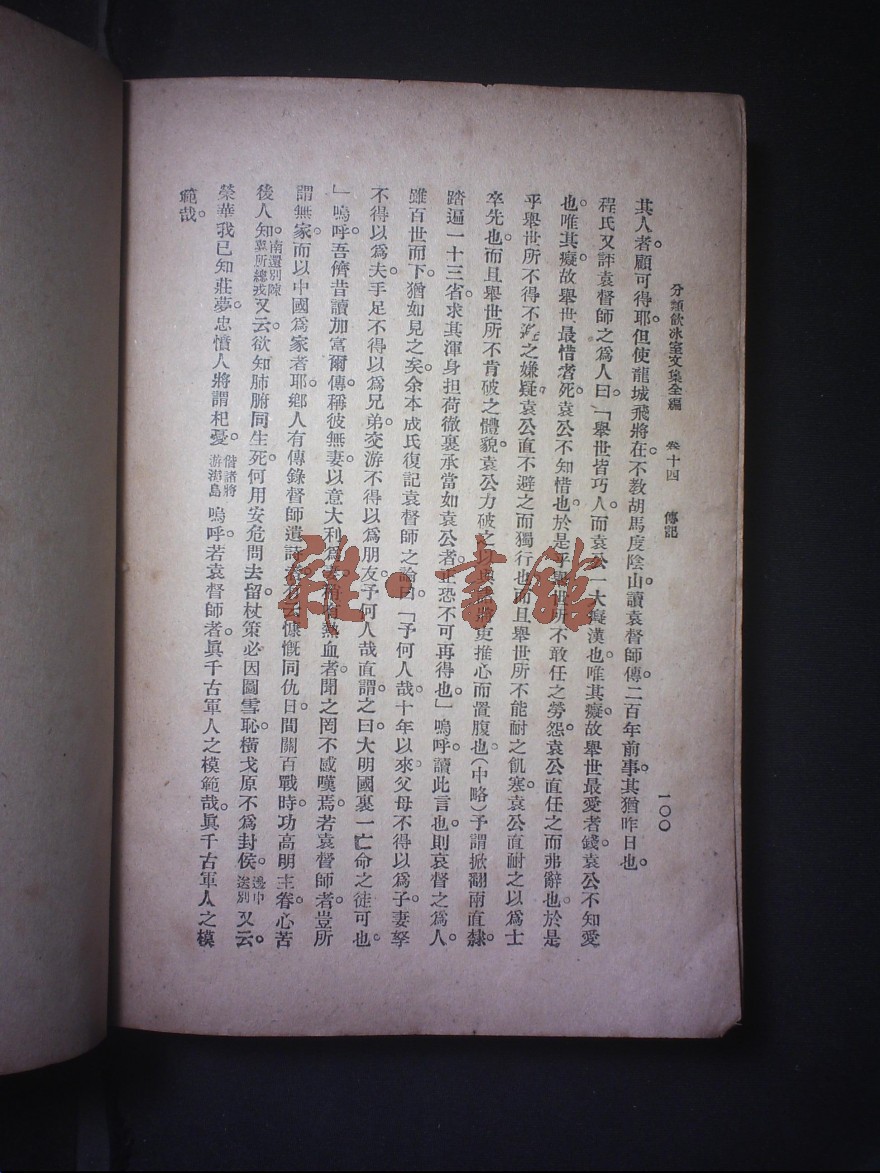 分類飲冰室文集全編 卷十四 傳記
一〇〇
其人者。顧可得耶。但使龍城飛將在。不教胡馬度陰山。讀袁督師傳。二百年前事。其猶昨日也。
程氏又評袁督師之爲人曰。「舉世皆巧人。而袁公一大癡漢也。唯其癡。故舉世最愛者錢。袁公不知愛
也。唯其癡。故舉世最惜者死。袁公不知惜也。於是乎舉世所不敢任之勞怨。袁公直任之而弗辭也。於是
乎舉世所不得不避之嫌疑。袁公直不避之而獨行也。而且舉世所不能耐之飢寒。袁公直耐之以爲士
卒先也。而且舉世所不肯破之體貌。袁公力破之以與諸將吏推心而置腹也。(中略)予謂掀翻兩直隸。
踏遍一十三省。求其渾身担荷徹裏承當如袁公者。正恐不可再得也。」嗚呼。讀此言也。則袁督之爲人。
雖百世而下。猶如見之矣。余本成氏復記袁督師之論曰。「予何人哉。十年以來。父母不得以爲子。妻孥
不得以爲夫。手足不得以爲兄弟。交游不得以爲朋友。予何人哉。直謂之曰大明國裏一亡命之徒可也。
」嗚呼。吾儕昔讀加富爾傳。稱彼無妻。以意大利爲妻。稍有熱血者。聞之罔不感嘆焉。若袁督師者。豈所
謂無家而以中國爲家者耶。鄉人有傳錄督師遺詩者。有云。慷慨同仇日。間關百戰時。功高明主眷。心苦
後人知。南還別陳翼所總戎又云。欲知肺腑同生死。何用安危問去留。杖策必因圖雪恥。橫戈原不爲封侯。邊中送別又云。
榮華我已知莊夢。忠憤人將謂杞憂。偕諸將游海島嗚呼。若袁督師者。眞千古軍人之模範哉。眞千古軍人之模
範哉。
雜·書館